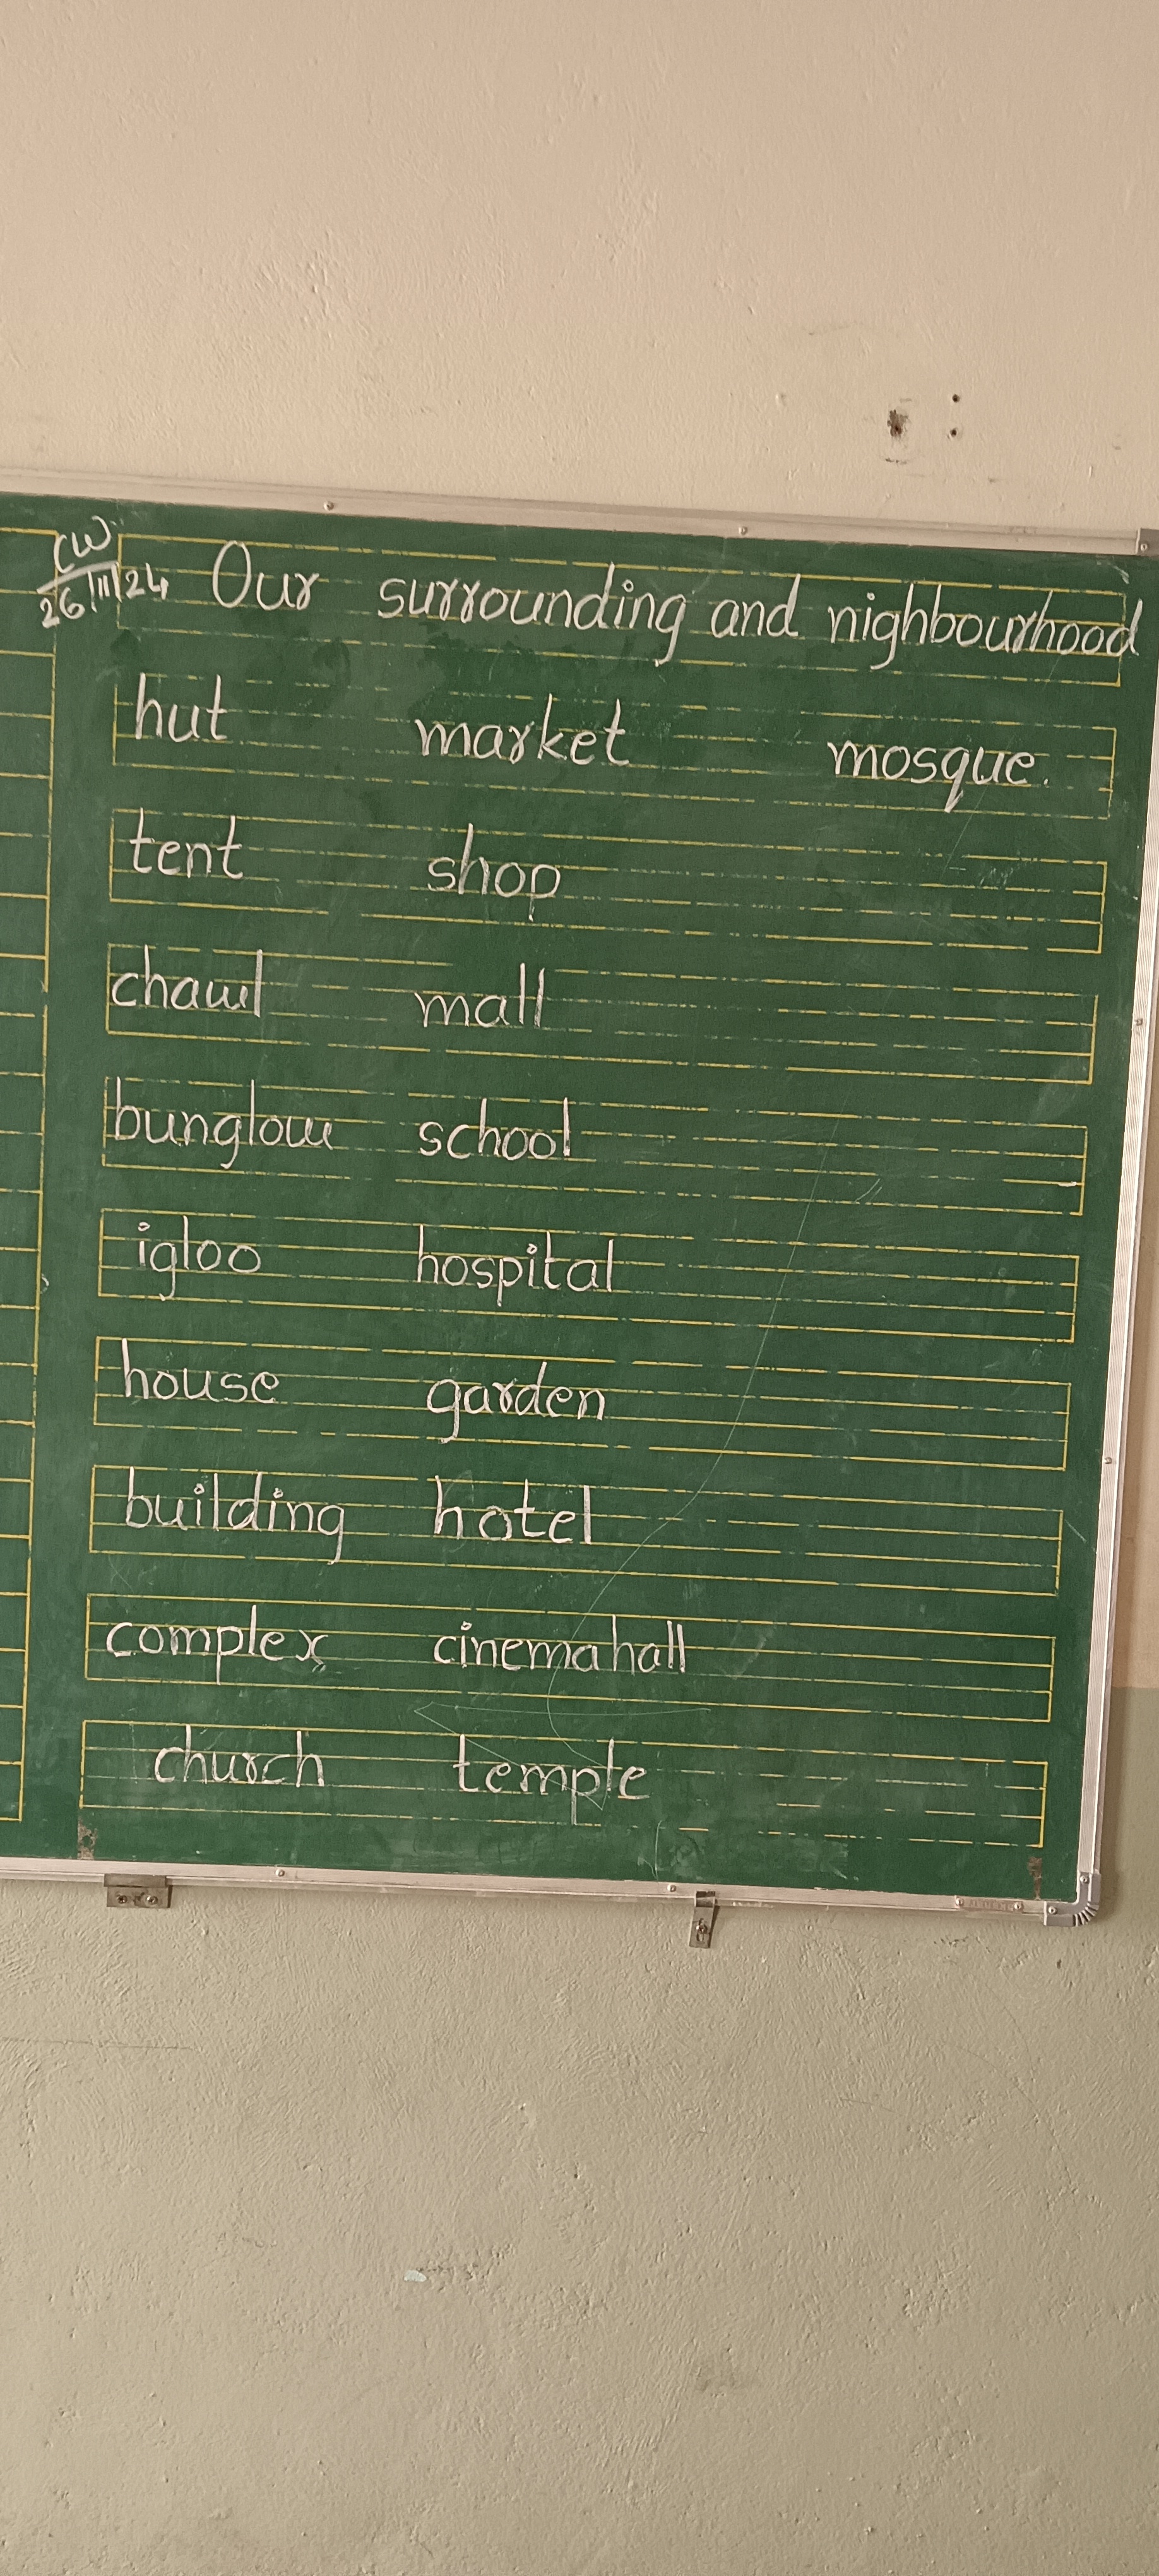 CW
26/11/24 Our surrounding and nighbourhood
hut market mosque.
tent shop
chawl mall
bunglow school
igloo hospital
house garden
building hotel
complex cinemahall
church temple